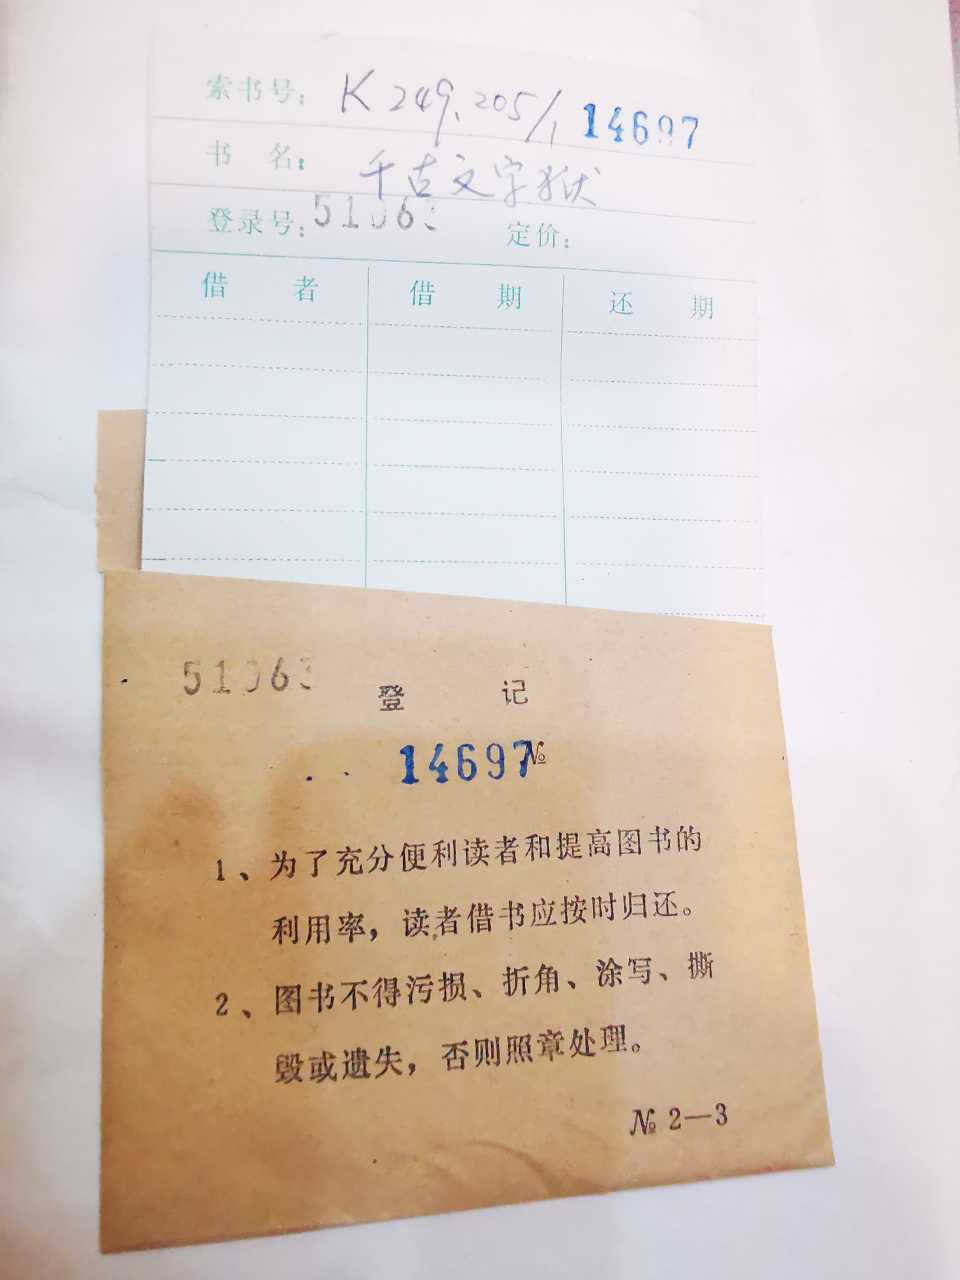 索书号： K 249.205/1 14697
书 名： 千古文字狱
登录号： 51063 定价：
借 者 借 期 还 期
51063
登 记
14697 №
1、为了充分便利读者和提高图书的
利用率，读者借书应按时归还。
2、图书不得污损、折角、涂写、撕
毁或遗失，否则照章处理。
№ 2—3